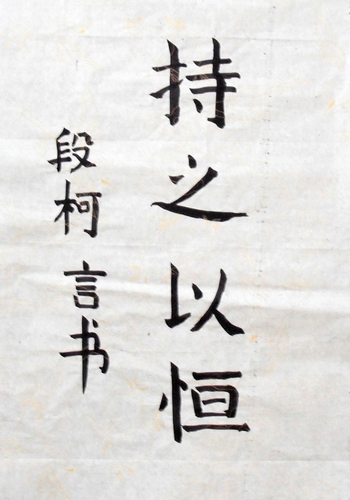 持之以恒
段柯言书